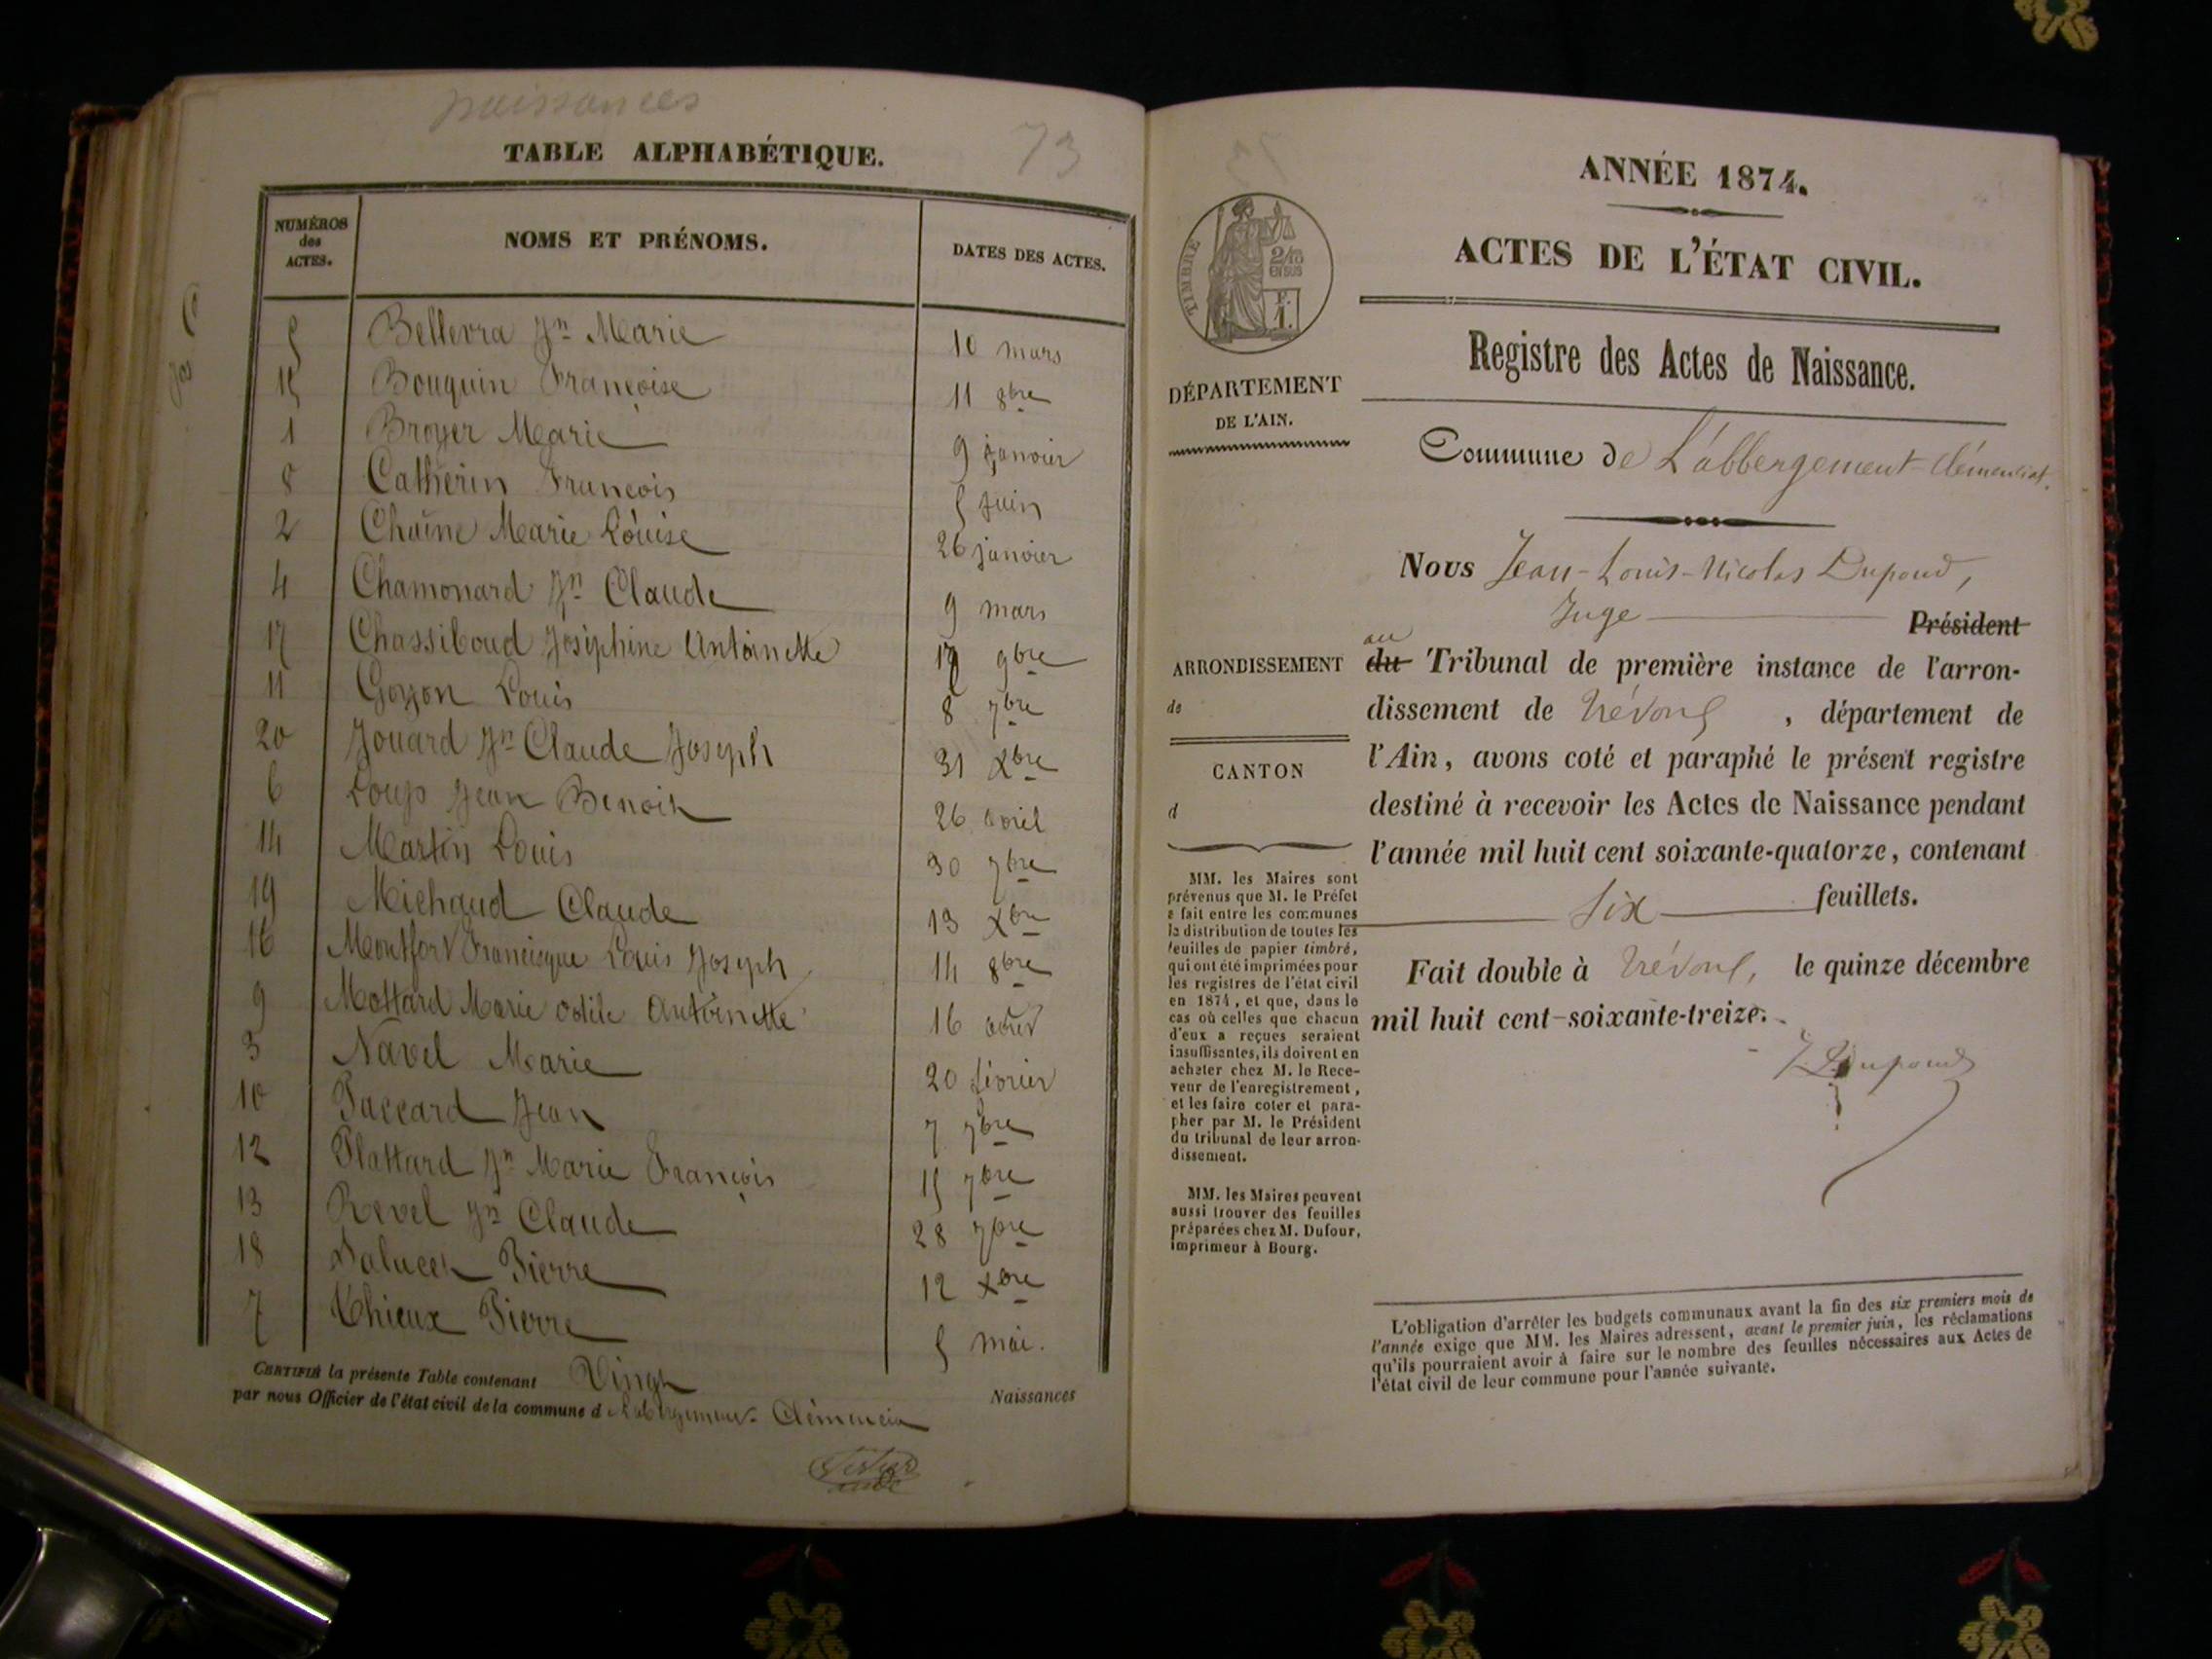 naissances
73
TABLE ALPHABÉTIQUE.
NUMÉROS des ACTES. NOMS ET PRÉNOMS. DATES DES ACTES.
5 Bellevra Jn Marie 10 mars
15 Bouquin Françoise 11 8bre
1 Broyer Marie 9 janvier
8 Cathérin François 5 Juin
2 Chaîne Marie Louise 26 janvier
4 Chamonard Jn Claude 9 mars
17 Chassiboud Joséphine Antoinette 17 9bre
11 Goyon Louis 8 7bre
20 Jouard Jn Claude Joseph 31 Xbre
6 Loup Jean Benoit 26 avril
14 Martin Louis 30 7bre
19 Michaud Claude 13 Xbre
16 Montfort Francisque Louis Joseph 14 8bre
9 Mottard Marie Odile Antoinette 16 août
3 Navel Marie 20 février
10 Paccard Jean 7 7bre
12 Plattard Jn Marie François 15 7bre
13 Revel Jn Claude 28 7bre
18 Pierre 12 Xbre
7 Thieux Pierre 5 mai.
CERTIFIÉ la présente Table contenant Vingt Naissances
par nous Officier de l'état civil de la commune d Clémencia
ANNÉE 1874.
ACTES DE L'ÉTAT CIVIL.
TIMBRE
2/10 EN SUS
F. 1.
Registre des Actes de Naissance.
DÉPARTEMENT
DE L'AIN.
Commune de L'abbergement-Clémenciat.
Nous Jean-Louis-Nicolas Dupond,
Juge Président
au
du Tribunal de première instance de l'arron-
dissement de Trévoux, département de
l'Ain, avons coté et paraphé le présent registre
destiné à recevoir les Actes de Naissance pendant
l'année mil huit cent soixante-quatorze, contenant
six feuillets.
Fait double à Trévoux, le quinze décembre
mil huit cent-soixante-treize.
Dupond
ARRONDISSEMENT
de
CANTON
d
MM. les Maires sont
prévenus que M. le Préfet
a fait entre les communes
la distribution de toutes les
feuilles de papier timbré,
qui ont été imprimées pour
les registres de l'état civil
en 1874, et que, dans le
cas où celles que chacun
d'eux a reçues seraient
insuffisantes, ils doivent en
acheter chez M. le Rece-
veur de l'enregistrement,
et les faire coter et para-
pher par M. le Président
du tribunal de leur arron-
dissement.
MM. les Maires peuvent
aussi trouver des feuilles
préparées chez M. Dufour,
imprimeur à Bourg.
L'obligation d'arrêter les budgets communaux avant la fin des six premiers mois de
l'année exige que MM. les Maires adressent, avant le premier juin, les réclamations
qu'ils pourraient avoir à faire sur le nombre des feuilles nécessaires aux Actes de
l'état civil de leur commune pour l'année suivante.